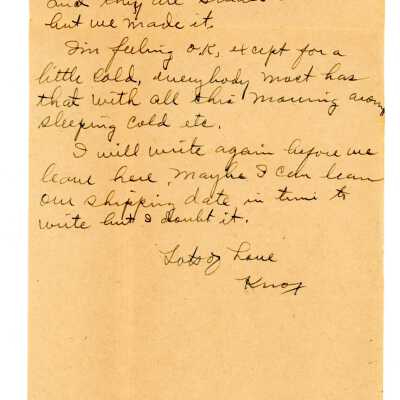 and they are
but we made it.
I'm feeling O.K, except for a
little cold, everybody most has
that with all this moving around
sleeping cold etc.
I will write again before we
leave here, Maybe I can learn
our shipping date in time to
write but I doubt it.
Lots of Love
Knox